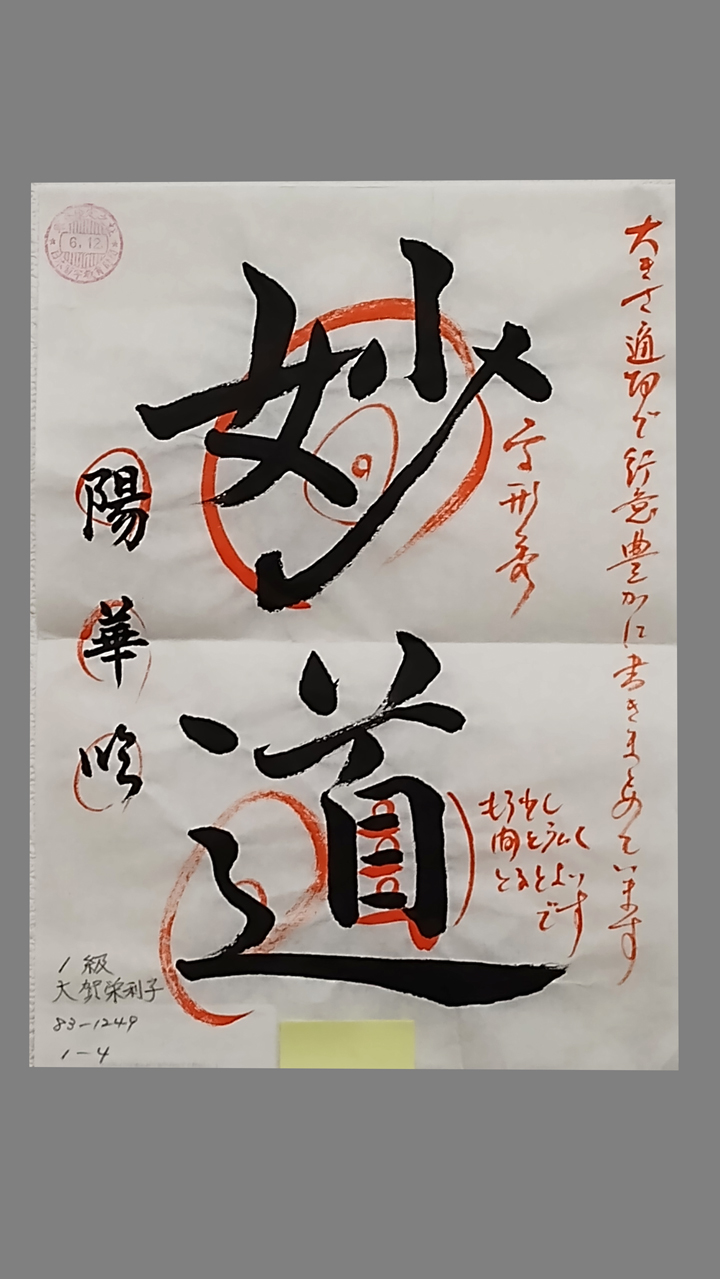 大きさ適切で行意豊かに書きまとめています
妙道
字形秀
もう少し
間を広く
とるとよい
です
陽華
1級
大賀栄利子
83-1249
1-4
6.12